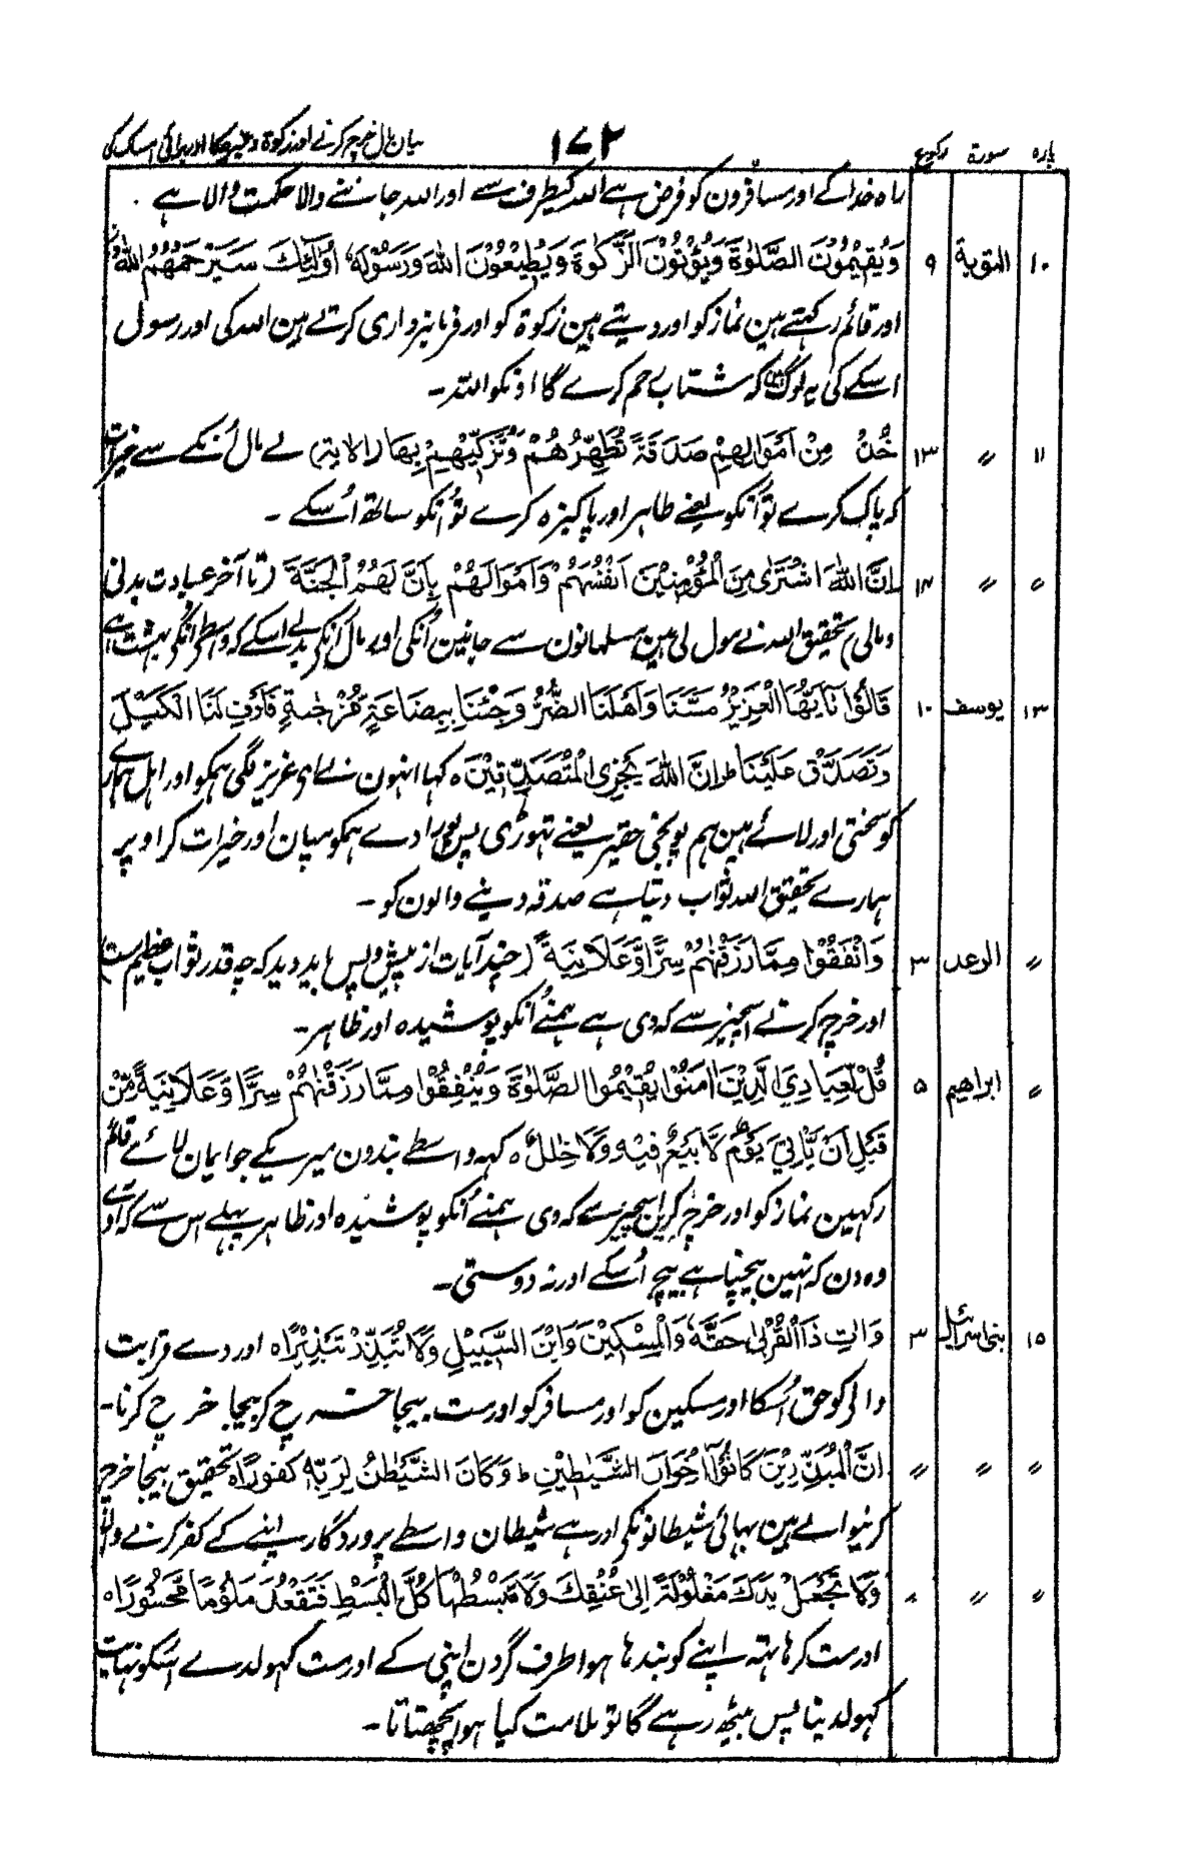 پارہ سورۃ رکوع ۱۷۲ بیان مال خرچ کرنے اور زکوۃ وغیرہ کا اور برائی امساک کی
راہ خدا کے اور مسافرون کو فرض ہے اللہ کیطرف سے اور اللہ جاننے والا حکمت والا ہے ۔
۱۰ التوبة ۹ وَيُقِيْمُوْنَ الصَّلٰوةَ وَيُؤْتُوْنَ الزَّكٰوةَ وَيُطِيْعُوْنَ اللهَ وَرَسُوْلَهٗ اُولٰٓئِكَ سَيَرْحَمُهُمُ اللهُ
اور قائم رکہتے ہین نماز کو اور دیتے ہین زکوۃ کو اور فرمانبرداری کرتے ہین اللہ کی اور رسول
اسکے کی یہ لوگ کہ شتاب رحم کرے گا اونکو اللہ۔
۱۱ 〃 ۱۳ خُذْ مِنْ اَمْوَالِهِمْ صَدَقَةً تُطَهِّرُهُمْ وَتُزَكِّيْهِمْ بِهَا (الآیۃ) لے مال اُنکے سے خیرات
کہ پاک کرے تو اُنکو یعنے طاہر اور پاکیزہ کرے تو اُنکو ساتھ اُسکے ۔
〃 〃 ۱۴ اِنَّ اللهَ اشْتَرٰى مِنَ الْمُؤْمِنِيْنَ اَنْفُسَهُمْ وَاَمْوَالَهُمْ بِاَنَّ لَهُمُ الْجَنَّةَ (تا آخر عبادت بدنی
ومالی) تحقیق اللہ نے مول لی ہین مسلمانون سے جانین اُنکی اور مال اُنکے بدلے اسکے کہ واسطے اُنکے بہشت ہے
۱۳ یوسف ۱۰ قَالُوْا يٰٓاَيُّهَا الْعَزِيْزُ مَسَّنَا وَاَهْلَنَا الضُّرُّ وَجِئْنَا بِبِضَاعَةٍ مُّزْجٰىةٍ فَاَوْفِ لَنَا الْكَيْلَ
وَتَصَدَّقْ عَلَيْنَا ط اِنَّ اللهَ يَجْزِى الْمُتَصَدِّقِيْنَ ٥ کہا انہون نے اے عزیز لگی ہمکو اور اہل ہمارے
کو سختی اور لائے ہین ہم پونجی حقیر یعنے تہوڑی پس پورا دے ہمکو میپان اور خیرات کر اوپر
ہمارے تحقیق اللہ ثواب دیتا ہے صدقہ دینے والون کو۔
〃 الرعد ۳ وَاَنْفَقُوْا مِمَّا رَزَقْنٰهُمْ سِرًّا وَّعَلَانِيَةً (چند آیات از پیش وپس باید دید کہ چہ قدر ثواب عظیم ست)
اور خرچ کرتے اسچیز سے کہ دی ہے ہمنے اُنکو پوشیدہ اور ظاہر۔
〃 ابراهیم ۵ قُلْ لِّعِبَادِيَ الَّذِيْنَ اٰمَنُوْا يُقِيْمُوا الصَّلٰوةَ وَيُنْفِقُوْا مِمَّا رَزَقْنٰهُمْ سِرًّا وَّعَلَانِيَةً مِّنْ
قَبْلِ اَنْ يَّاْتِيَ يَوْمٌ لَّا بَيْعٌ فِيْهِ وَلَا خِلٰلٌ ٥ کہہ واسطے بندون میرے کے جو ایمان لائے قائم
رکہین نماز کو اور خرچ کرین اسچیز سے کہ دی ہمنے اُنکو پوشیدہ اور ظاہر پہلے اس سے کہ آوے
وہ دن کہ نہین بیچنا ہے بیچ اُسکے اور نہ دوستی۔
۱۵ بنی اسرائیل ۳ وَاٰتِ ذَا الْقُرْبٰى حَقَّهٗ وَالْمِسْكِيْنَ وَابْنَ السَّبِيْلِ وَلَا تُبَذِّرْ تَبْذِيْرًا ٥ اور دے قرابت
والے کو حق اُسکا اور مسکین کو اور مسافر کو اور مت بیجا خرچ کر بیجا خرچ کرنا۔
〃 〃 〃 اِنَّ الْمُبَذِّرِيْنَ كَانُوْٓا اِخْوَانَ الشَّيٰطِيْنِ ط وَكَانَ الشَّيْطٰنُ لِرَبِّهٖ كَفُوْرًا ٥ تحقیق بیجا خرچ
کرنیوالے ہین بہائی شیطانونکے اور ہے شیطان واسطے پروردگار اپنے کے کفر کرنے والا
〃 〃 〃 وَلَا تَجْعَلْ يَدَكَ مَغْلُوْلَةً اِلٰى عُنُقِكَ وَلَا تَبْسُطْهَا كُلَّ الْبَسْطِ فَتَقْعُدَ مَلُوْمًا مَّحْسُوْرًا ٥
اور مت کر ہاتہ اپنے کو بندہا ہوا طرف گردن اپنی کے اور مت کہولدے اُسکو نہایت
کہولدینا پس بیٹھ رہے گا تو ملامت کیا ہوا پچھتاتا۔